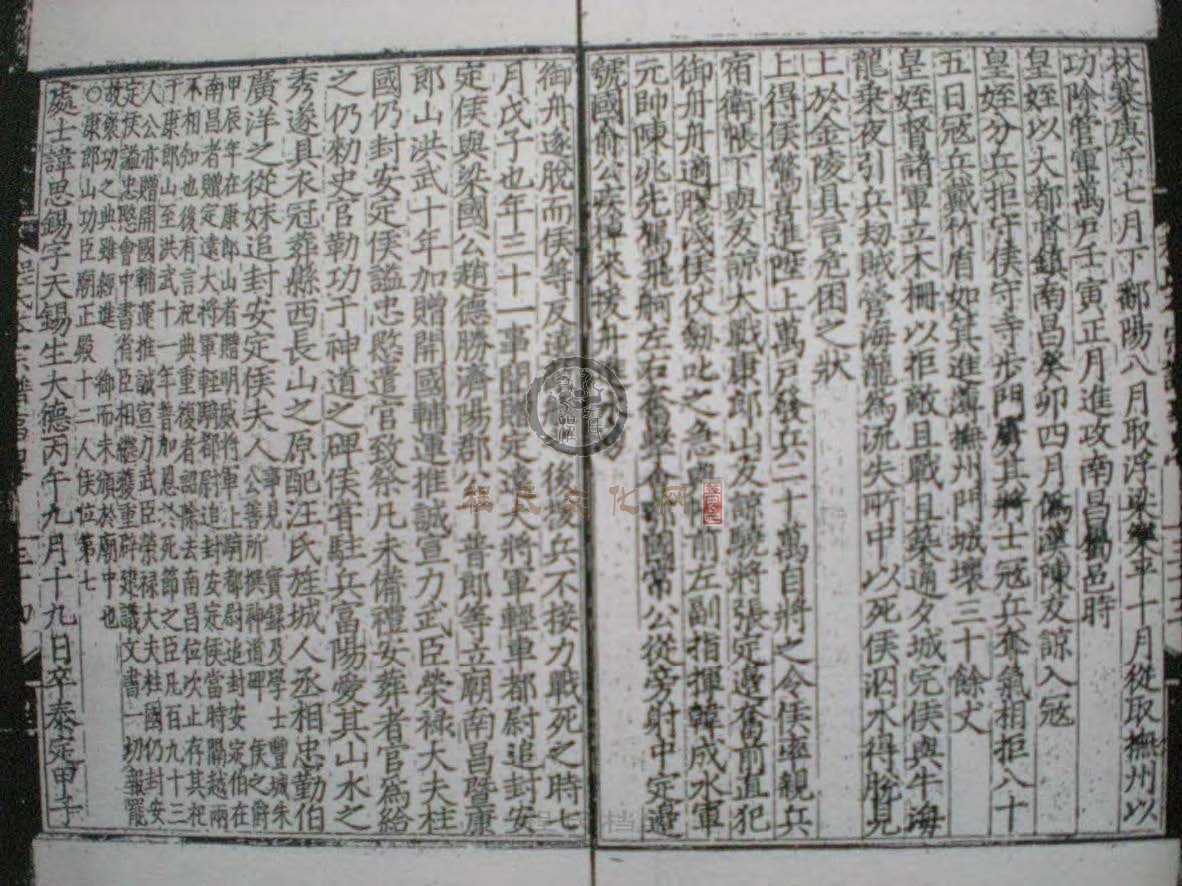 林寨庚子七月下鄱陽八月取浮梁樂平十月從取撫州以
功除管軍萬戶壬寅正月進攻南昌屬邑時
皇姪以大都督鎮南昌癸卯四月偽漢陳友諒入寇
皇姪分兵拒守侯守寺步門勵其將士寇兵奪氣相拒八十
五日寇兵戴竹盾如箕進薄撫州門城壞三十餘丈
皇姪督諸軍立木柵以拒敵且戰且築通夕城完侯與牛海
龍乗夜引兵劫賊營海龍為流矢所中以死侯泅水得脫見
上於金陵具言危困之狀
上得侯驚喜進陞上萬戶發兵二十萬自將之令侯率親兵
宿衛帳下與友諒大戰康郎山友諒驍將張定邊奮前直犯
御舟舟適膠淺侯仗劒叱之急與前左副指揮韓成水軍
元帥陳兆先駕飛舸左右奮擊會鄂國常公從旁射中定邊
號國俞公疾棹來援舟進水湧
御舟遂脫而侯等反遶 後援兵不接力戰死之時七
月戊子也年三十一事聞贈定遠大將軍輕車都尉追封安
定侯與梁國公趙德勝濟陽郡公 普郎等立廟南昌暨康
郎山洪武十年加贈開國輔運推誠宣力武臣榮祿大夫柱
國仍封安定侯謚忠愍遣官致祭凡未備禮安葬者官為給
之仍勑史官勒功于神道之碑侯昔駐兵富陽愛其山水之
秀遂具衣冠葬縣西長山之原配汪氏旌城人丞相忠勤伯
廣洋之從妹追封安定侯夫人 公善所撰神道碑 侯之爵
甲辰年在康郎山者贈明威將軍上騎都尉追封安定伯在
南昌者贈定遠大將軍輕車都尉追封安定侯當時隔越兩
不相知也後有言祀典重復者認除去南昌位次止存其祀
于康郎山至洪武十一年普加恩於死節之臣凡百九十三
人公亦贈開國輔運推誠宣力武臣榮祿大夫柱國仍封安
定侯謚忠愍會中書省臣相繼獲重辟建議文書一切報罷
故褒功之典雖經進 御而未頒於廟中也
○康郎山功臣廟正殿十二人侯位第七
處士諱思錫字天錫生大德丙午九月十九日卒泰定甲子